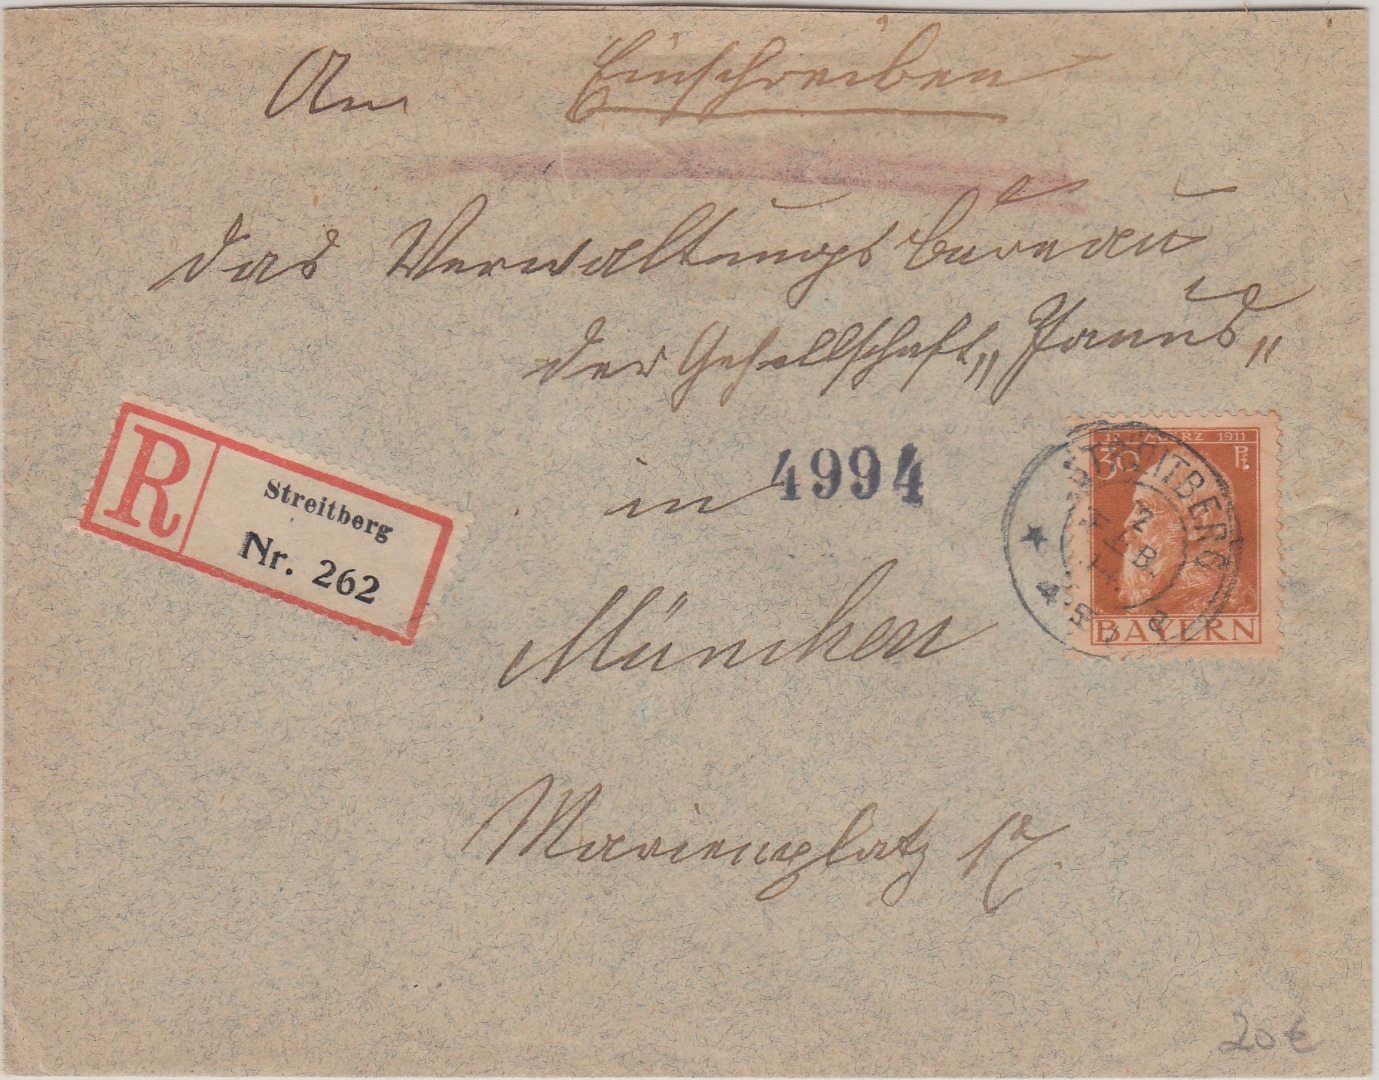 An Einschreiben
das Verwaltungsbureau
der Gesellschaft „Janus„
in 4994
München
Marienplatz 17.
R Streitberg
Nr. 262
12. MÄRZ 1911
30 Pf.
BAYERN
STREITBERG
2
FEB.
14.
20€